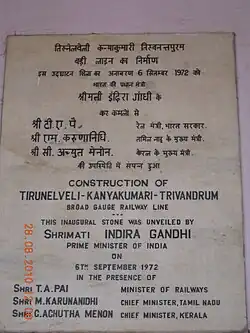 तिरुनेलवेली कन्याकुमारी तिरुवनन्तपुरम
बड़ी लाइन का निर्माण
इस उद्घाटन शिला का अनावरण 6 सितम्बर 1972 को
भारत की प्रधान मंत्री
श्रीमती इंदिरा गांधी के
कर कमलों से
श्री टी. ए. पै रेल मंत्री, भारत सरकार.
श्री एम. करुणानिधि, तमिल नाडु के मुख्य मंत्री.
श्री सी. अच्युत मेनोन, केरल के मुख्य मंत्री.
की उपस्थिति में संपन्न हुआ
CONSTRUCTION OF
TIRUNELVELI-KANYAKUMARI-TRIVANDRUM
BROAD GAUGE RAILWAY LINE
THIS INAUGURAL STONE WAS UNVEILED BY
SHRIMATI INDIRA GANDHI
PRIME MINISTER OF INDIA
ON
6TH SEPTEMBER 1972
IN THE PRESENCE OF
SHRI T.A. PAI MINISTER OF RAILWAYS
SHRI M. KARUNANIDHI CHIEF MINISTER, TAMIL NADU
SHRI C. ACHUTHA MENON CHIEF MINISTER, KERALA